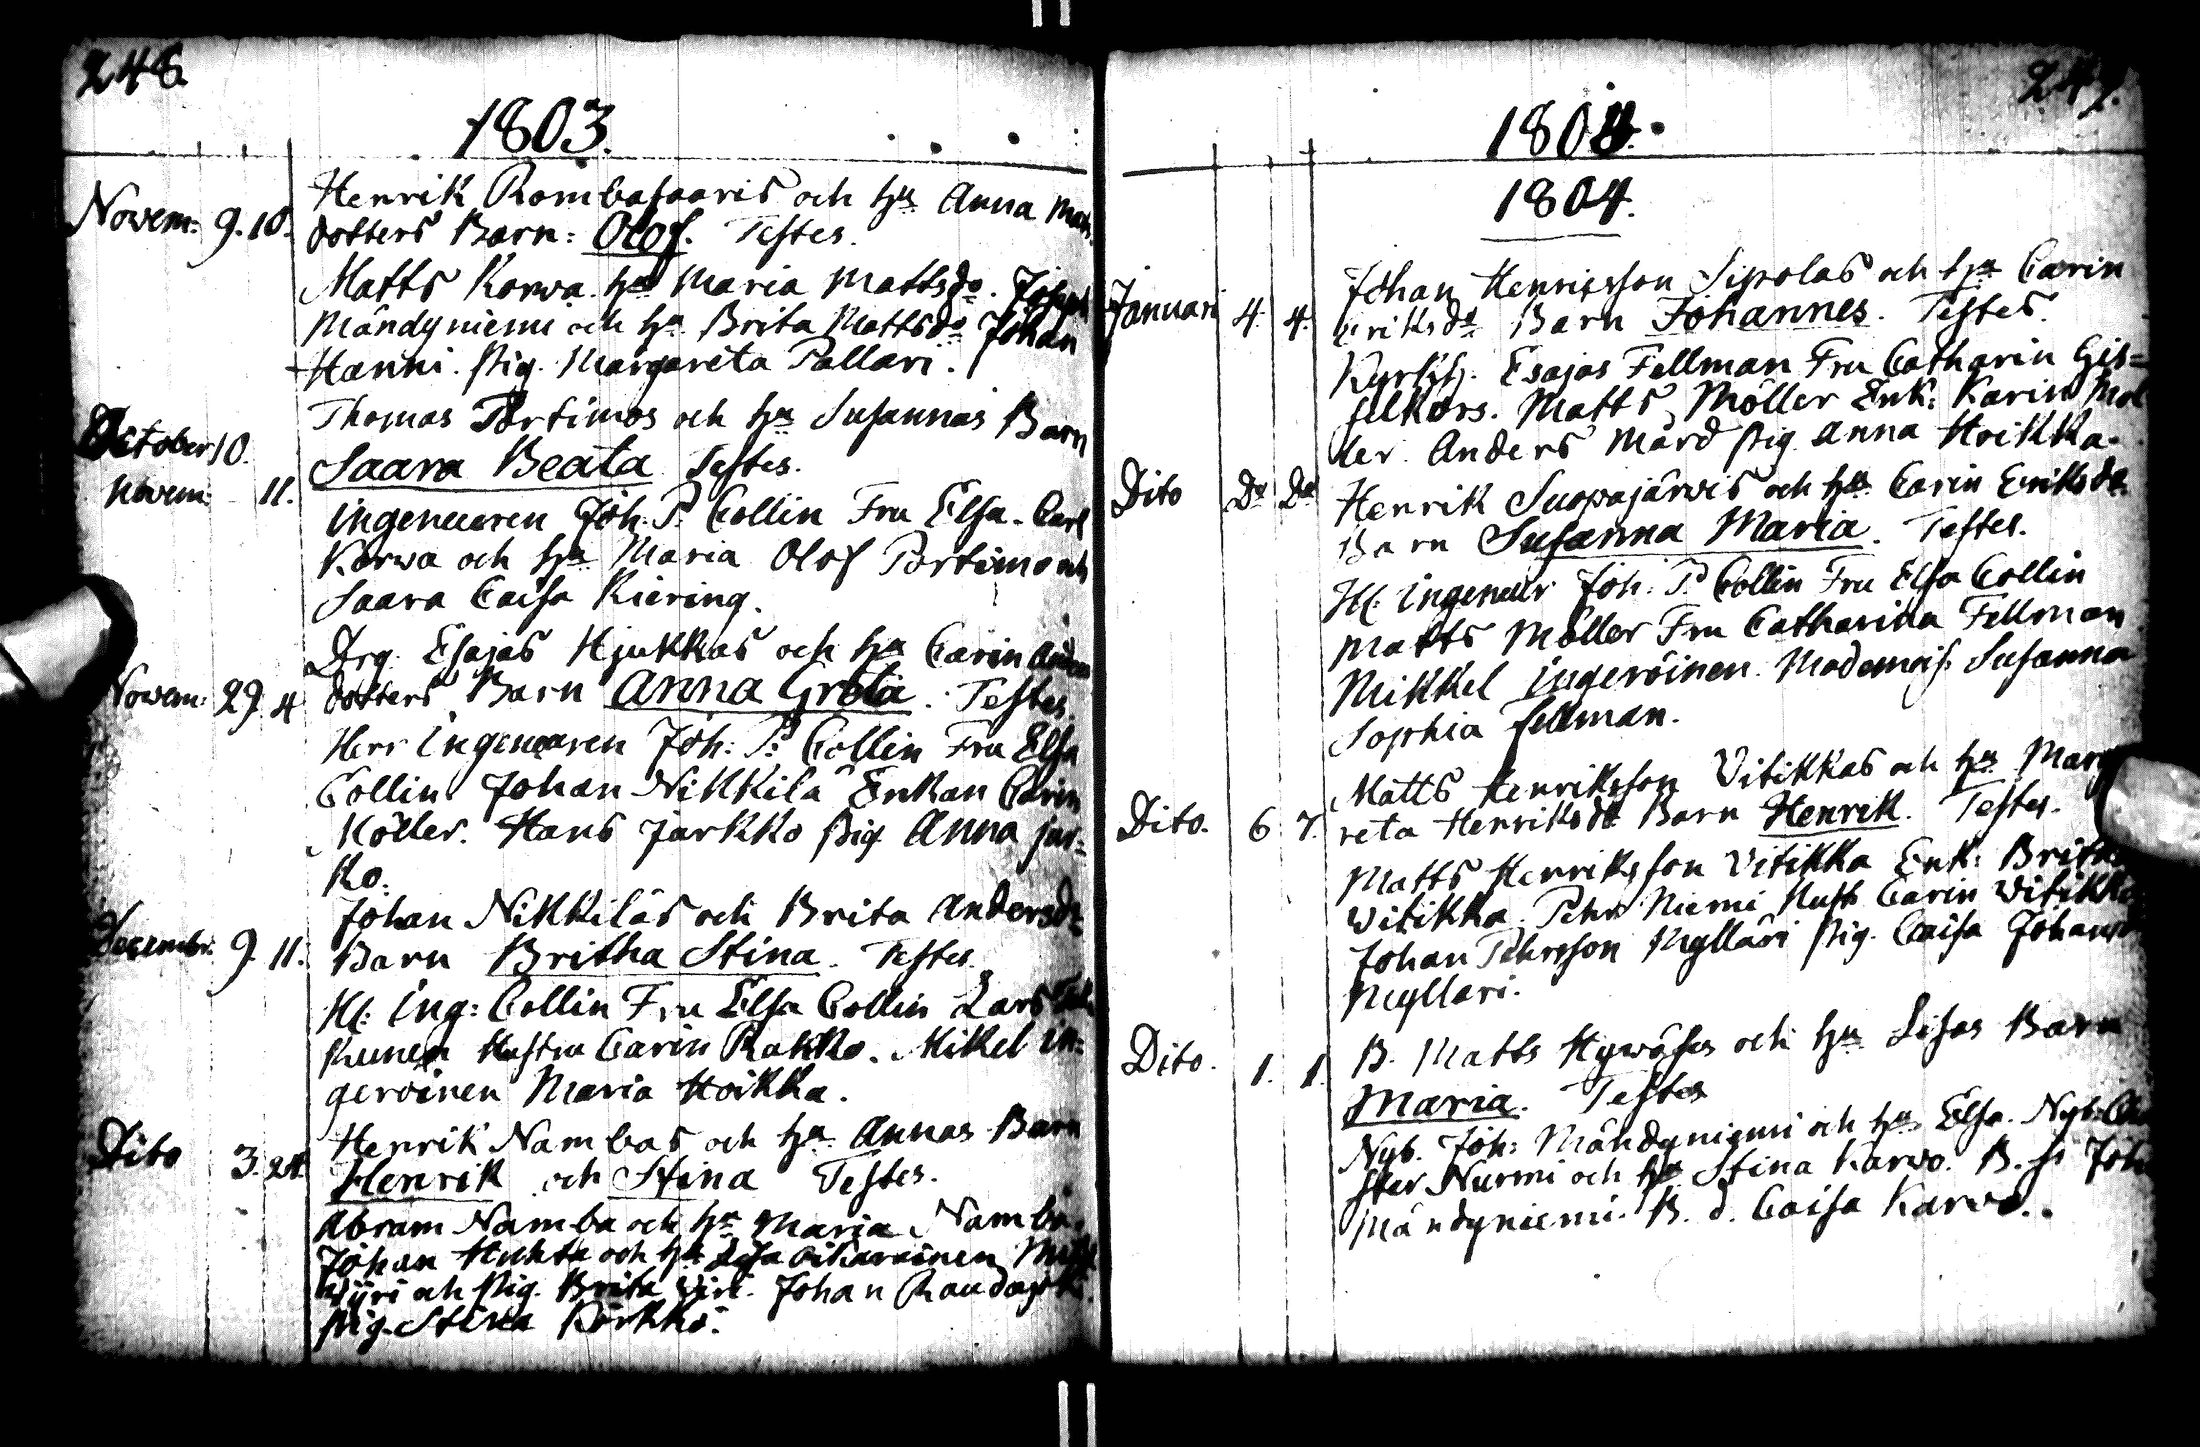 246.
1803.
Novem: 9. 10. Henrik Rombasaaris och hu Anna Matts
dotters Barn: Olof. Testes.
Matts Korwa hu Maria Mattsdo. Joseph
Mändyniemi och hu Brita Mattsdo Johan
Hanni. Pig. Margareta Pallari.
October 10. Thomas Portimos och hu Susannas Barn
Novem: 11. Saara Beata Testes.
ingeneuren Joh. P. Collin Fru Elsa. Carl
Korwa och hu Maria Olof Portimo och
Saara Caisa Kiering.
Drg. Esajas Hjukkas och hu Carin Anders
Novem: 29. 4 dotters Barn Anna Greta. Testes.
Herr ingeneuren Joh: P. Collin Fru Elsa
Collin Johan Nikkilä Enkan Carin
Möller. Hans Jarkko Pig. Anna Jar=
ko.
Johan Nikkiläs och Brita Andersdr
Decembr. 9. 11. Barn Britha Stina. Testes
H: ing: Collin Fru Elsa Collin Lars
Hustru Carin Rakko. Mikel in=
geröinen Maria Hoikka.
Henrik Nambas och hu Annas Barn
Dito 3. 24. Henrik och Stina Testes.
Abram Namba och hu Maria Namba.
Johan Huhta och hu Lisa Oikarainen
Wiiri och Pig. Brita Viri. Johan
Pig. Stina Körkkö.
247.
1803.
1804.
Johan Henricsson Sipolas och hu Carin
Januari 4. 4. Eriksdr Barn Johannes. Testes.
Kyrkhh. Esajas Fellman Fru Catharin Gis=
selkors. Matts Möller Enk: Karin Möl
ler. Anders Mård Pig. Anna Hoikka.
Dito Do Do Henrik Suopajärvis och hu Carin Eriksdr
Barn Susanna Maria. Testes.
H: ingeneur Joh: P. Collin Fru Elsa Collin
Matts Möller Fru Catharina Fellman
Mikkel ingeröinen. Mademois. Susanna
Sophia Fellman.
Matts Henriksson Vitikkas och hu Marg
Dito. 6 7. reta Henriksdr Barn Henrik. Testes.
Matts Henriksson Vitikka Enk: Britha
Witikka. Pehr Niemi Hust. Carin Witikka
Johan Pehrsson Mylläri Pig. Caisa Johansdr
Myllari.
Dito. 1. 1. B. Matts Hywäses och hu Lisas Barn
Maria. Testes
Nyb. Joh: Mändyniemi och hu Elsa. Nyb:
ster Nurmi och hu Stina Karwo. B. s. Joh
Mändyniemi. B. d. Caisa Karwo.